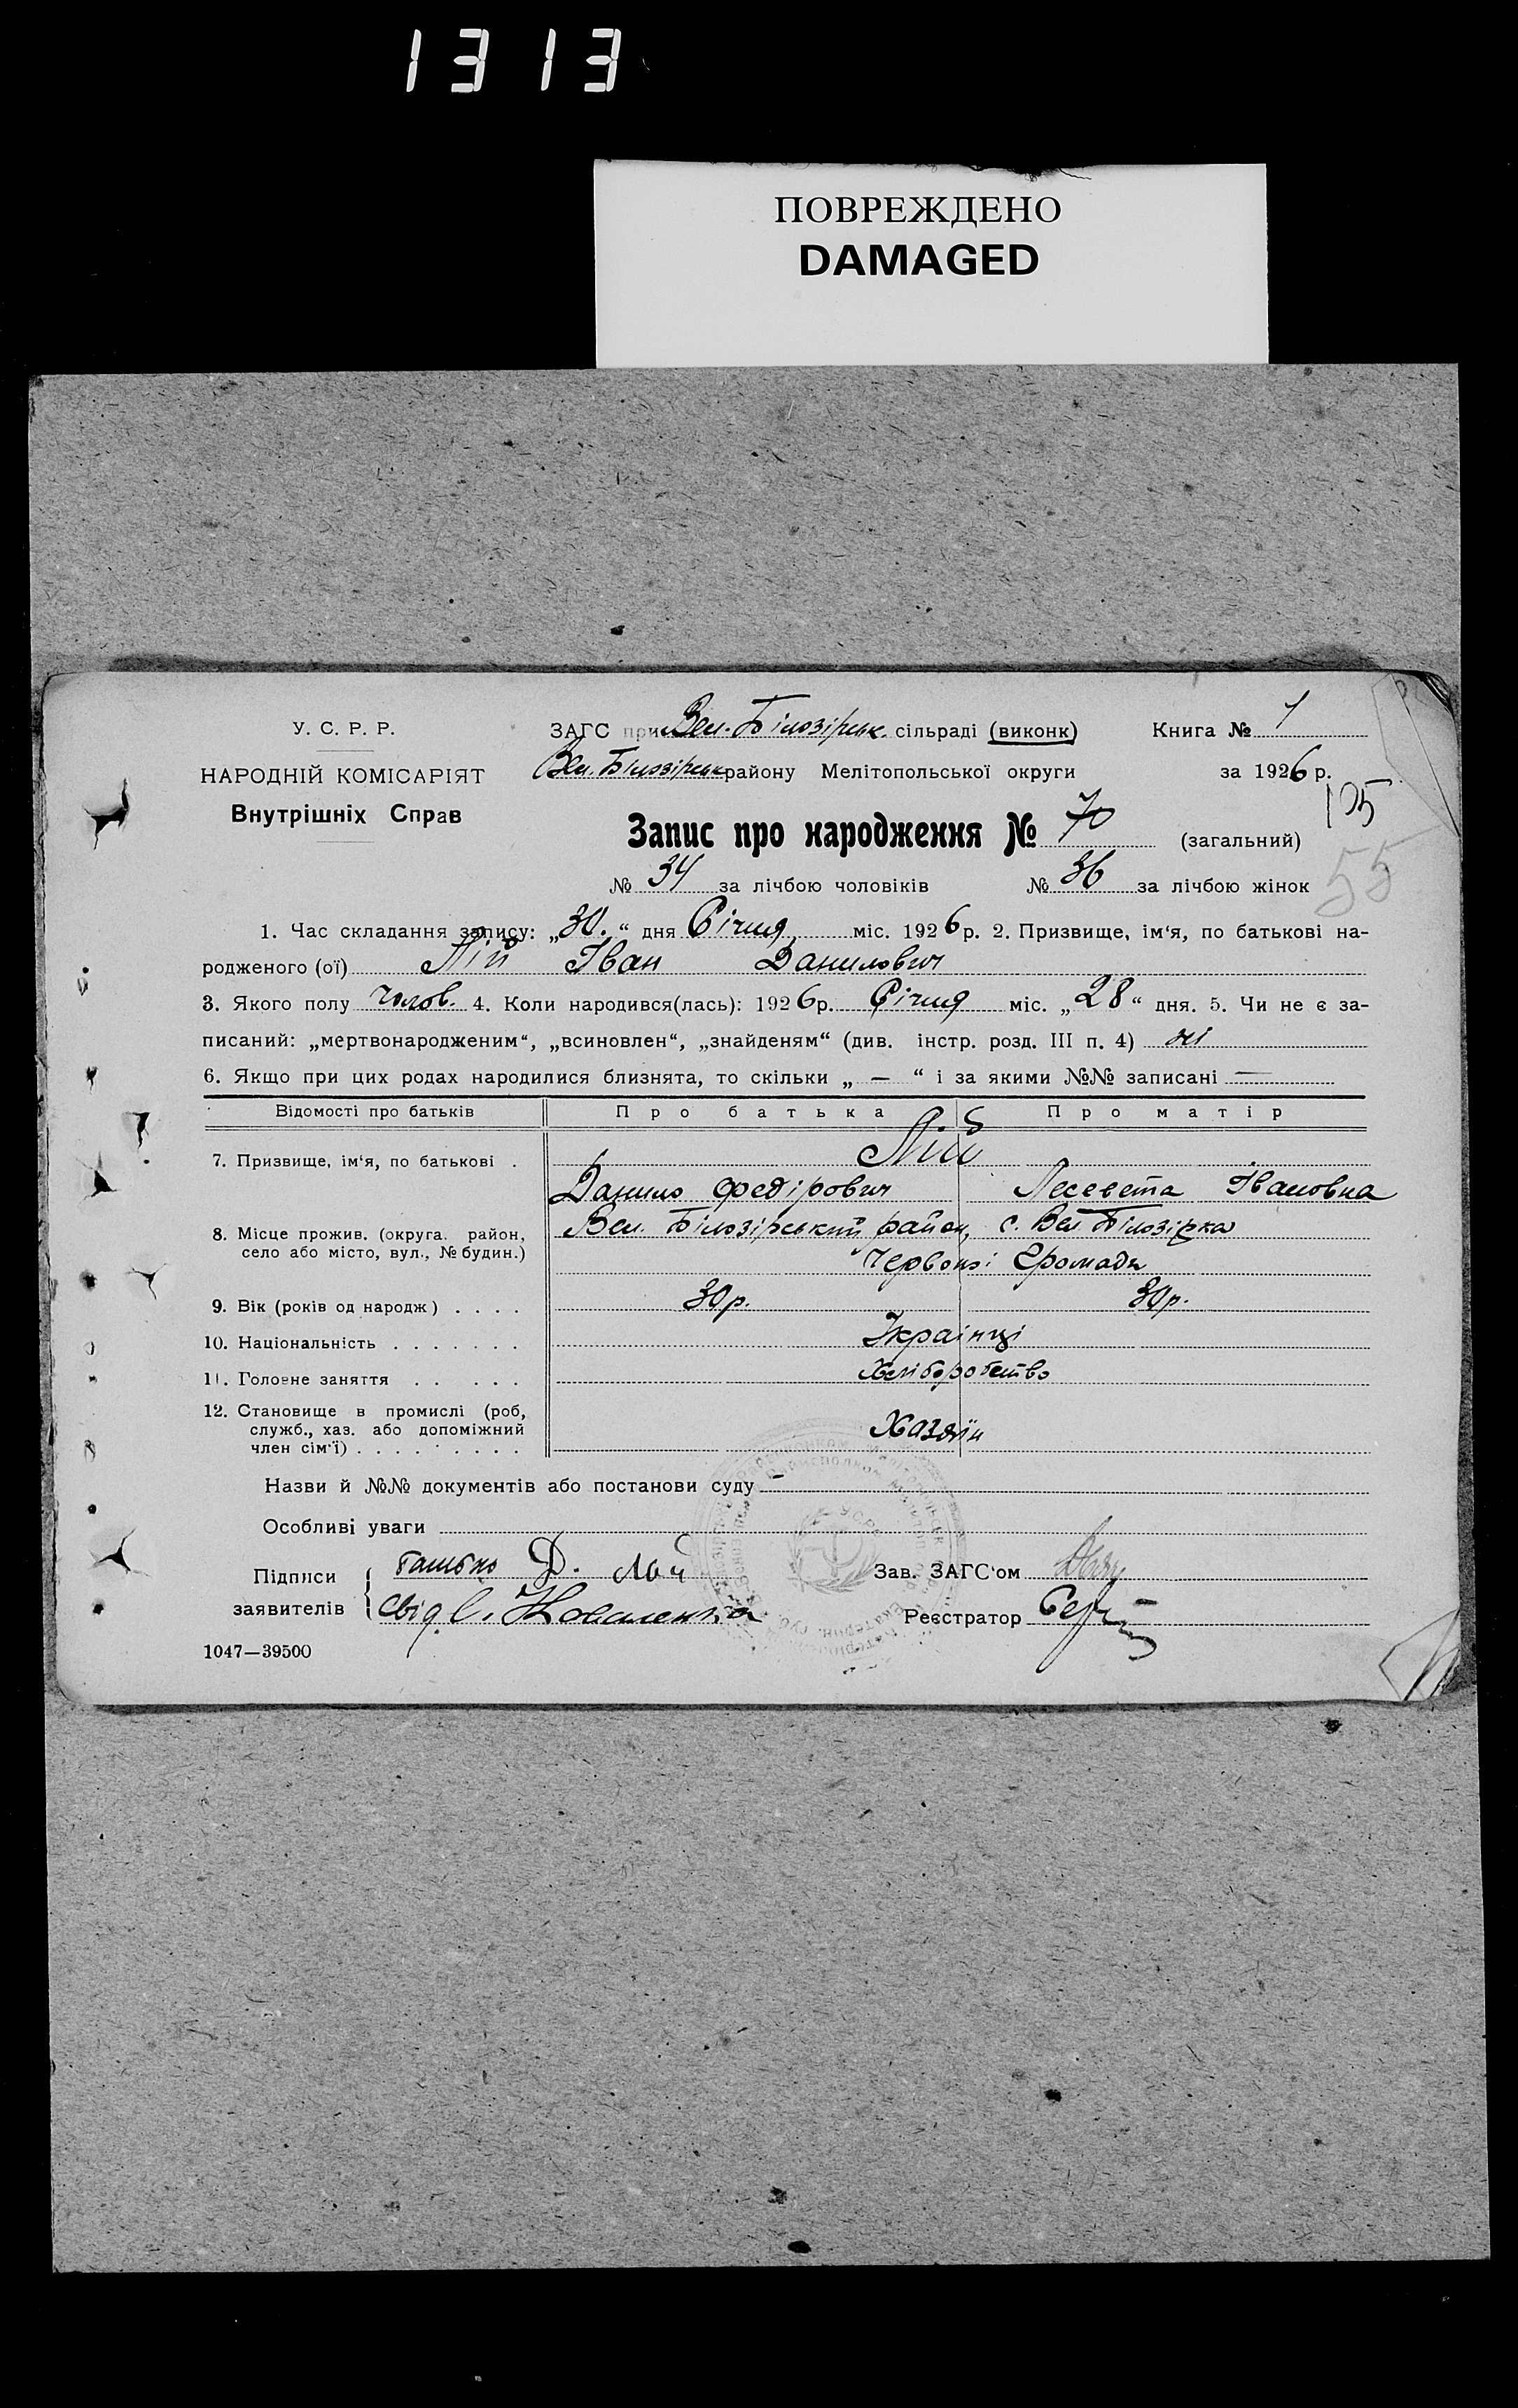 1313
ПОВРЕЖДЕНО
DAMAGED
У. С. Р. Р.
НАРОДНІЙ КОМІСАРІЯТ
Внутрішніх Справ
ЗАГС при Вел.-Білозірськ. сільраді (виконк)
Книга № 1
Вел. Білозірськ району Мелітопольської округи
за 1926 р.
105
Запис про народження № 70 (загальний)
55
№ 34 за лічбою чоловіків № 36 за лічбою жінок
1. Час складання запису: „30.“ дня Січня міс. 1926 р. 2. Призвище, ім‘я, по батькові на-
родженого (ої) Лій Іван Данилович
3. Якого полу чолов. 4. Коли народився(лась): 1926 р. Січня міс. „28“ дня. 5. Чи не є за-
писаний: „мертвонародженим“, „всиновлен“, „знайденям“ (див. інстр. розд. III п. 4) ні
6. Якщо при цих родах народилися близнята, то скільки „ — “ і за якими №№ записані —
Відомості про батьків Про батька Про матір
7. Призвище, ім‘я, по батькові . Лій
Данило Федірович Лесевета Івановна
8. Місце прожив. (округа. район, село або місто, вул., № будин.) Вел. Білозірський район, с. Вел. Білозірка
Червоної Громади
9. Вік (років од народж) . . . . 30 р. 30 р.
10. Національність . . . . . . . Українці
11. Головне заняття . . . . . Хліборобство
12. Становище в промислі (роб, служб., хаз. або допоміжний член сім‘ї) . . . . . . . . . Хазяїн
Назви й №№ документів або постанови суду —
Особливі уваги
Підписи заявителів батько Д. Лай
свід. С. Коваленко
Зав. ЗАГС‘ом
Реєстратор
1047—39500